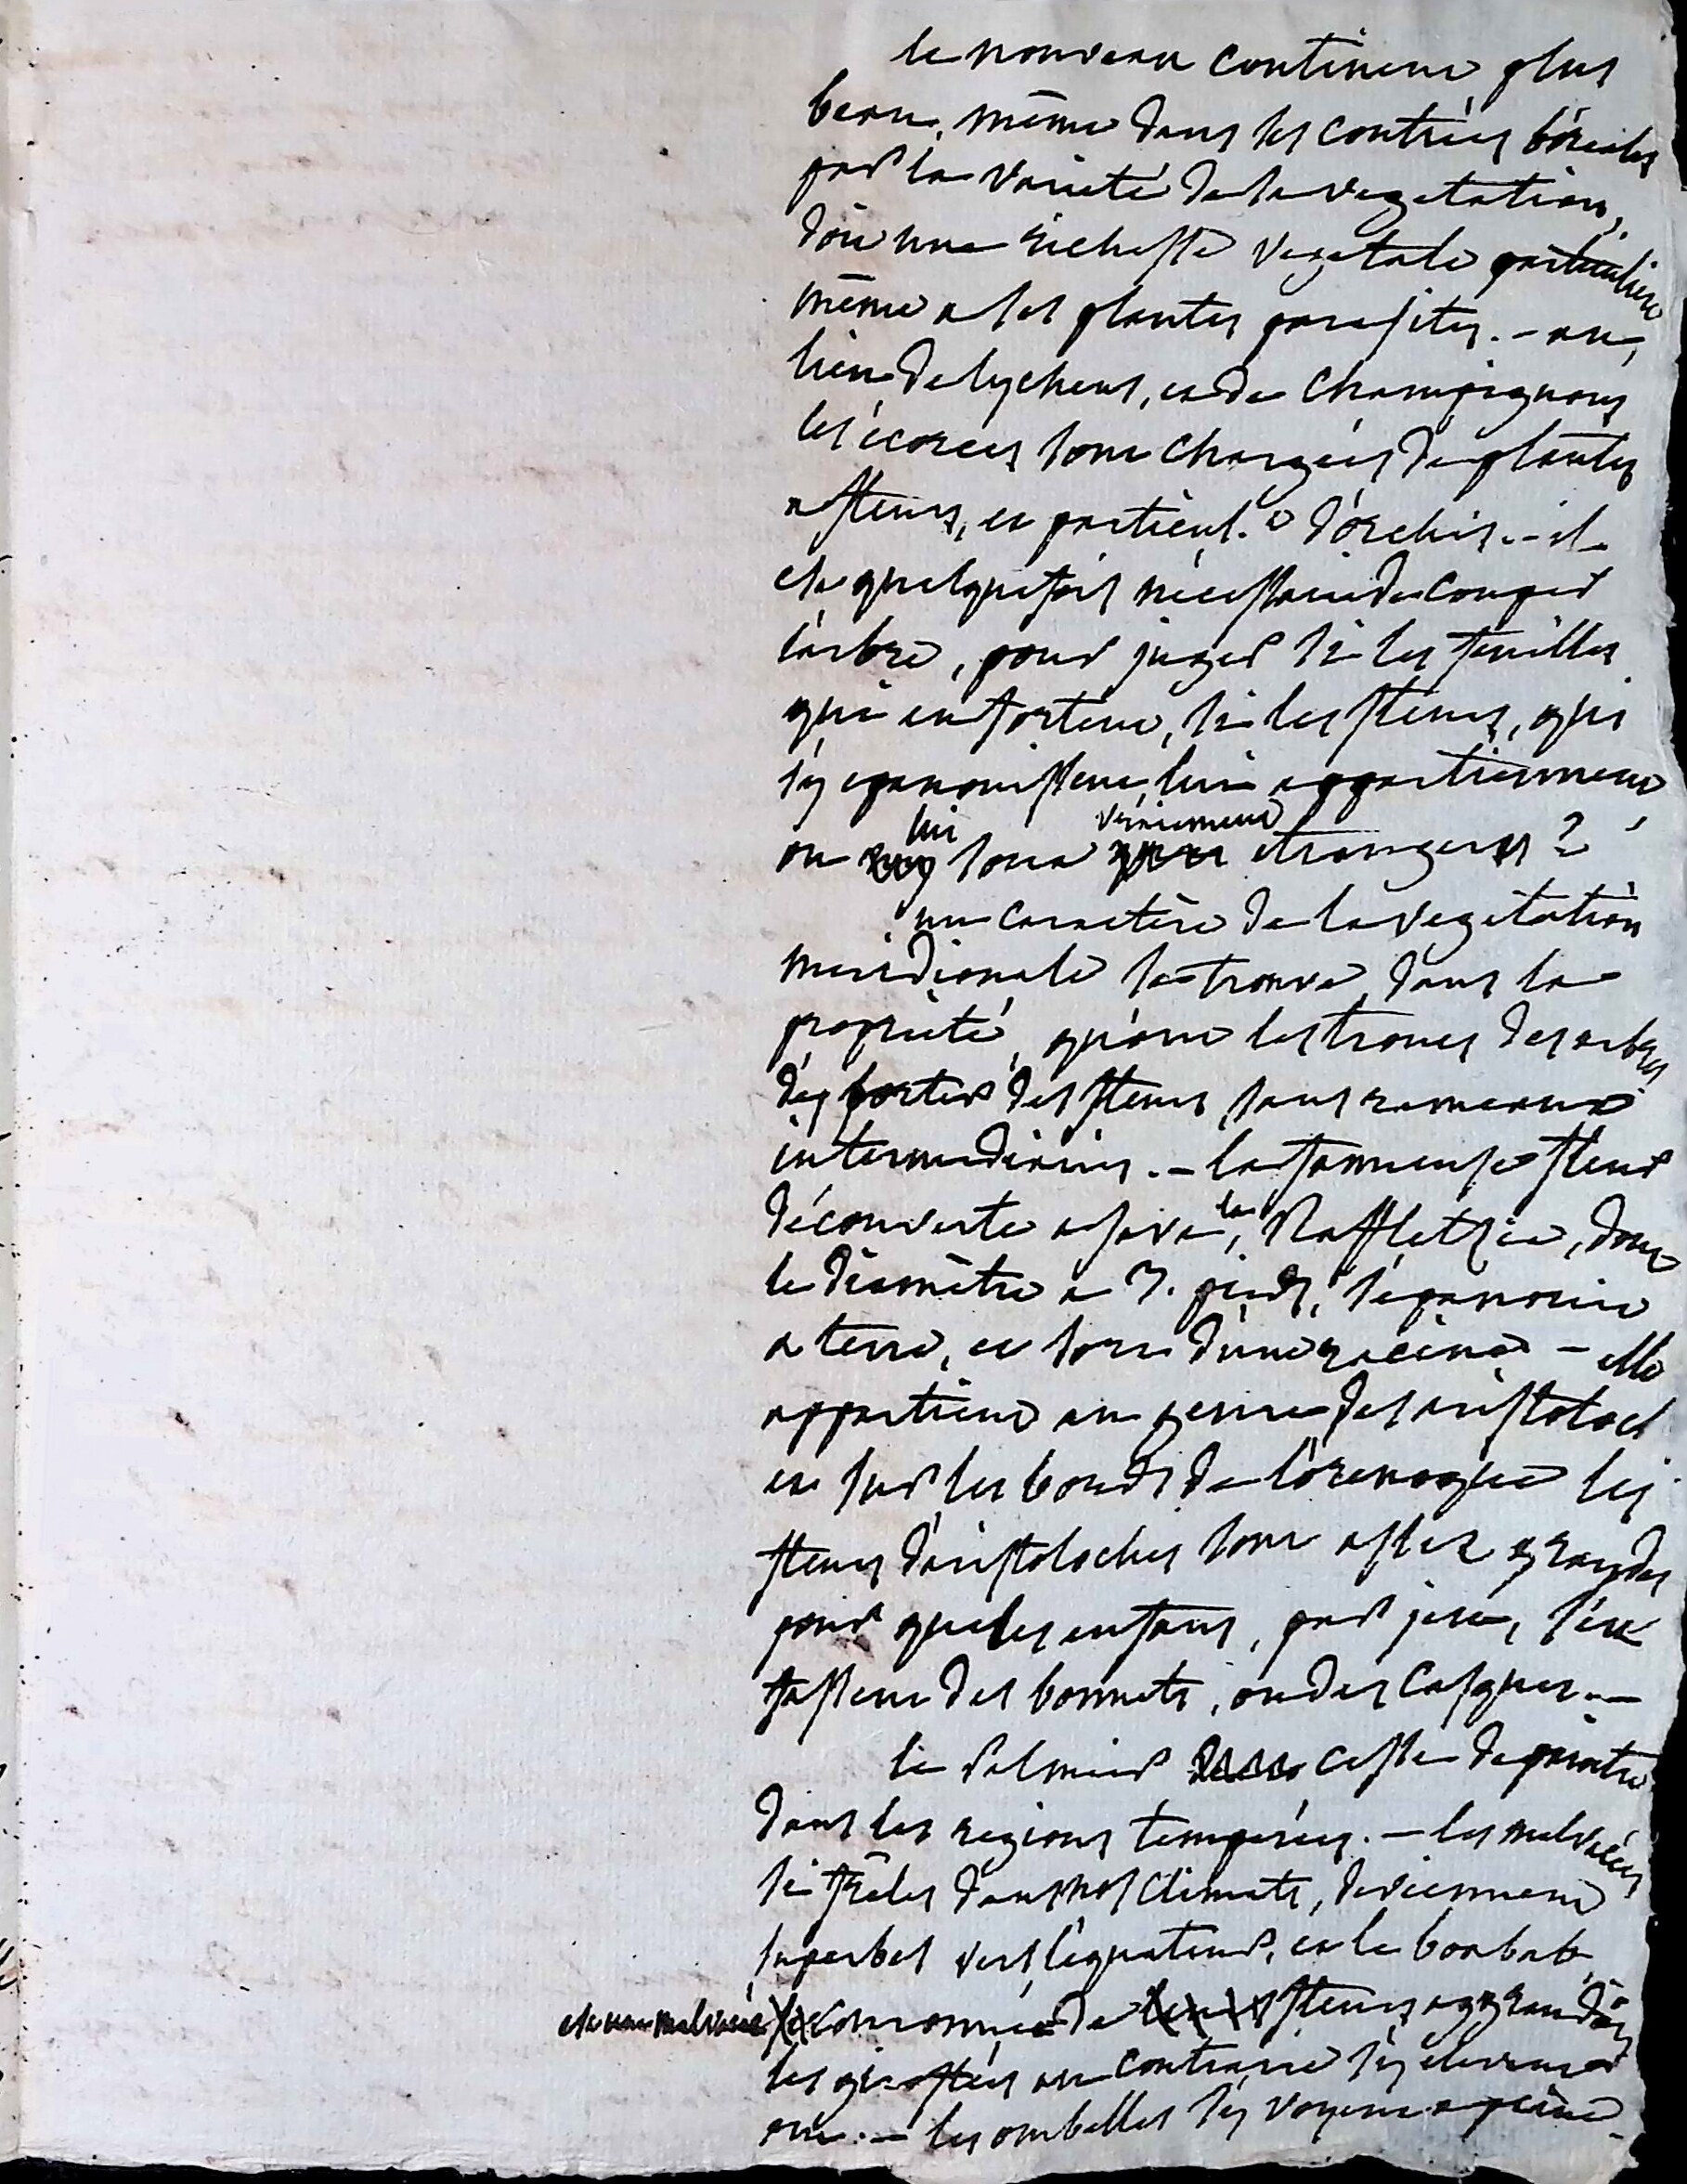 le nouveau continent, plus
beau, même dans les contrées boréales
par la varieté de la vegetation,
doit une richesse vegetale particuliere
même a ses plantes parasites. - au
lieu de lychens, et de champignons
les écorces sont chargées de plantes
a fleurs, et particul.t d'orchis. - il
est quelquefois nécessaire de couper
l'arbre, pour juger si les feuilles
qui en sortent, si les fleurs, qui
s'y epanouissent, lui appartiennent,
ou lui sont vraiment etrangers ?
un caractère de la vegetation
meridionale se trouve, dans la
proprieté, qu'ont les troncs des arbres
d'y porter des fleurs sans rameaux
intermediaires. - la fameuse fleur
découverte a Java, la Rafflesia, dont
le diamètre a 3. pieds, s'epanouit
a terre, et sort d'une racine - elle
appartient au genre des aristoloch
et sur les bords de l'orenoque les
fleurs d'aristoloches sont assez grandes
pour que les enfans, par jeu, s'en
fassent des bonnets, ou des casques. -
le Palmier cesse de paroitre
dans les regions temperées. - les malvacées
si frêles dans nos climats, deviennent
superbes vers l'equateur, et le boabab
est une malvacée couronnée de fleurs aggrandies
les giroflées au contraire s'y elevent
peu. - les ombelles s'y voyent a peine